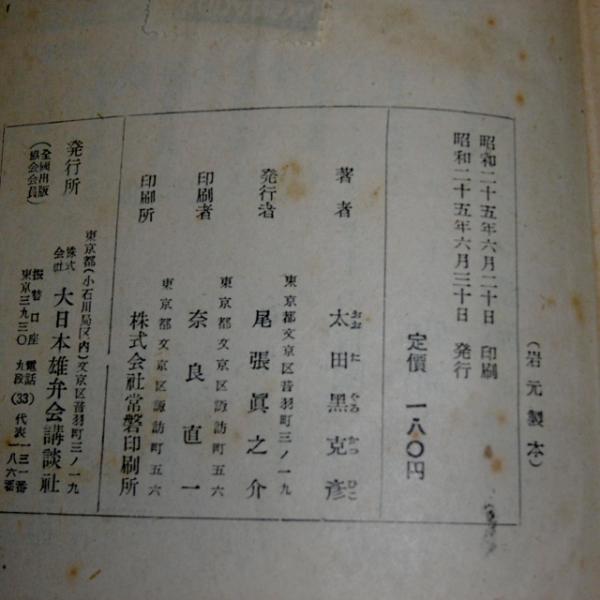 昭和二十五年六月二十日 印刷
昭和二十五年六月三十日 発行
(岩元製本)
定價 一八〇円
著者 太田黒克彦
おおたぐろかつひこ
東京都文京区音羽町三ノ一九
発行者 尾張眞之介
東京都文京区諏訪町五六
印刷者 奈良直一
東京都文京区諏訪町五六
印刷所 株式会社常磐印刷所
東京都(小石川局区内)文京区音羽町三ノ一九
発行所 株式会社 大日本雄弁会講談社
(全國出版協会会員)
振替口座 東京三九三〇
電話 九段(33) 代表 一三一番 一八六番